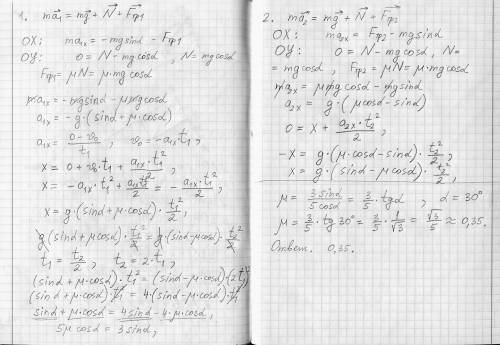 1. ma⃗₁ = mg⃗ + N⃗ + F⃗тр1
OX: ma₁ₓ = -mg sinα - Fтр1
OY: 0 = N - mg cosα, N = mg cosα
Fтр1 = μN = μ·mg cosα
ma₁ₓ = -mg sinα - μmg cosα
a₁ₓ = -g·(sinα + μ cosα)
a₁ₓ = (0 - v₀)/t₁, v₀ = -a₁ₓt₁;
x = 0 + v₀·t₁ + a₁ₓ·t₁²/2;
x = -a₁ₓ·t₁² + a₁ₓt₁²/2 = -a₁ₓ·t₁²/2;
x = g·(sinα + μ cosα)·t₁²/2,
g(sinα + μ cosα)·t₁²/2 = g·(sinα - μ cosα)·t₂²/2
t₁ = t₂/2, t₂ = 2·t₁,
(sinα + μ cosα)·t₁² = (sinα - μ cosα)·(2t₁)²
(sinα + μ cosα)·t₁² = 4·(sinα - μ cosα)·t₁²
sinα + μ cosα = 4 sinα - 4·μ cosα,
5μ cosα = 3 sinα,
2. ma⃗₂ = mg⃗ + N⃗ + F⃗тр2
OX: ma₂ₓ = Fтр2 - mg sinα
OY: 0 = N - mg cosα, N =
= mg cosα, Fтр2 = μN = μ·mg cosα
ma₂ₓ = μmg cosα - mg sinα
a₂ₓ = g·(μ cosα - sinα)
0 = x + a₂ₓ·t₂²/2;
-x = g·(μ·cosα - sinα)·t₂²/2,
x = g·(sinα - μ cosα)·t₂²/2,
μ = 3 sinα/5 cosα = 3/5·tgα, α = 30°
μ = 3/5·tg 30° = 3/5·1/√3 = √3/5 ≈ 0,35.
Ответ. 0,35.